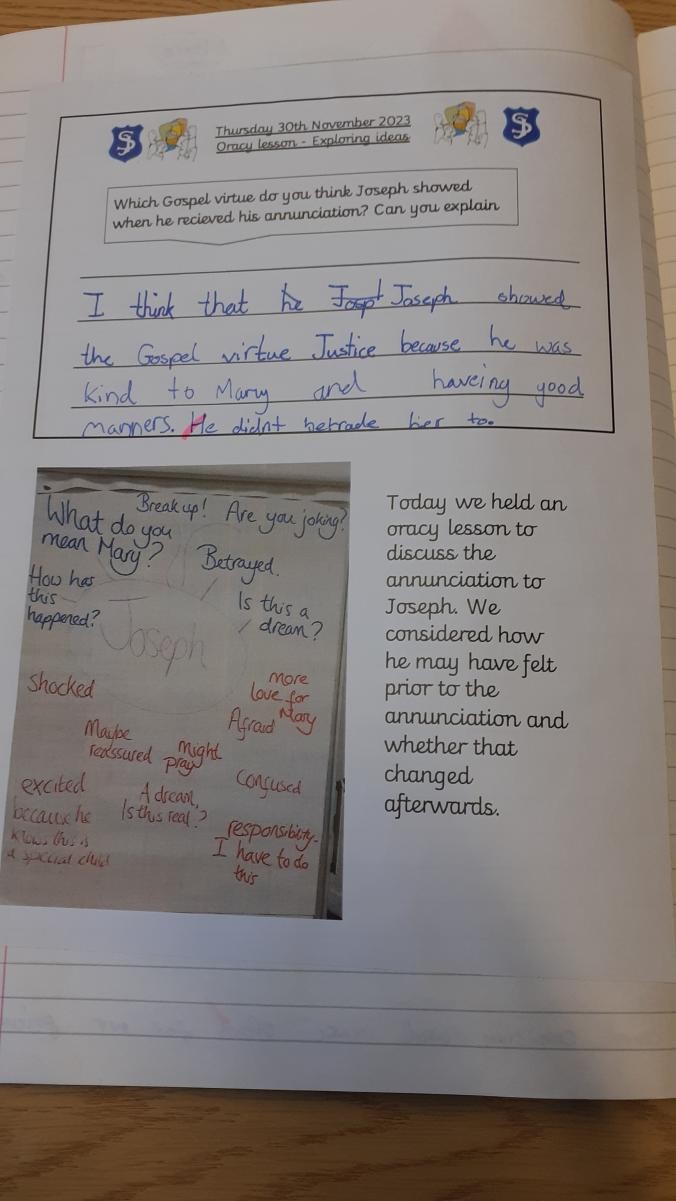 Thursday 30th November 2023
Oracy lesson - Exploring ideas
Which Gospel virtue do you think Joseph showed
when he recieved his annunciation? Can you explain
I think that he Josept Joseph showed
the Gospel virtue Justice because he was
kind to Mary and haveing good
manners. He didnt betrade her to.
Break up! Are you joking?
What do you
mean Mary?
Betrayed.
How has
this
happened?
Is this a
dream?
Joseph
Shocked
more
love for
Mary
Afraid
Maybe
reassured
might
pray
Confused
excited
because he
knows this is
a special child
A dream,
Is this real?
responsibility-
I have to do
this
Today we held an
oracy lesson to
discuss the
annunciation to
Joseph. We
considered how
he may have felt
prior to the
annunciation and
whether that
changed
afterwards.